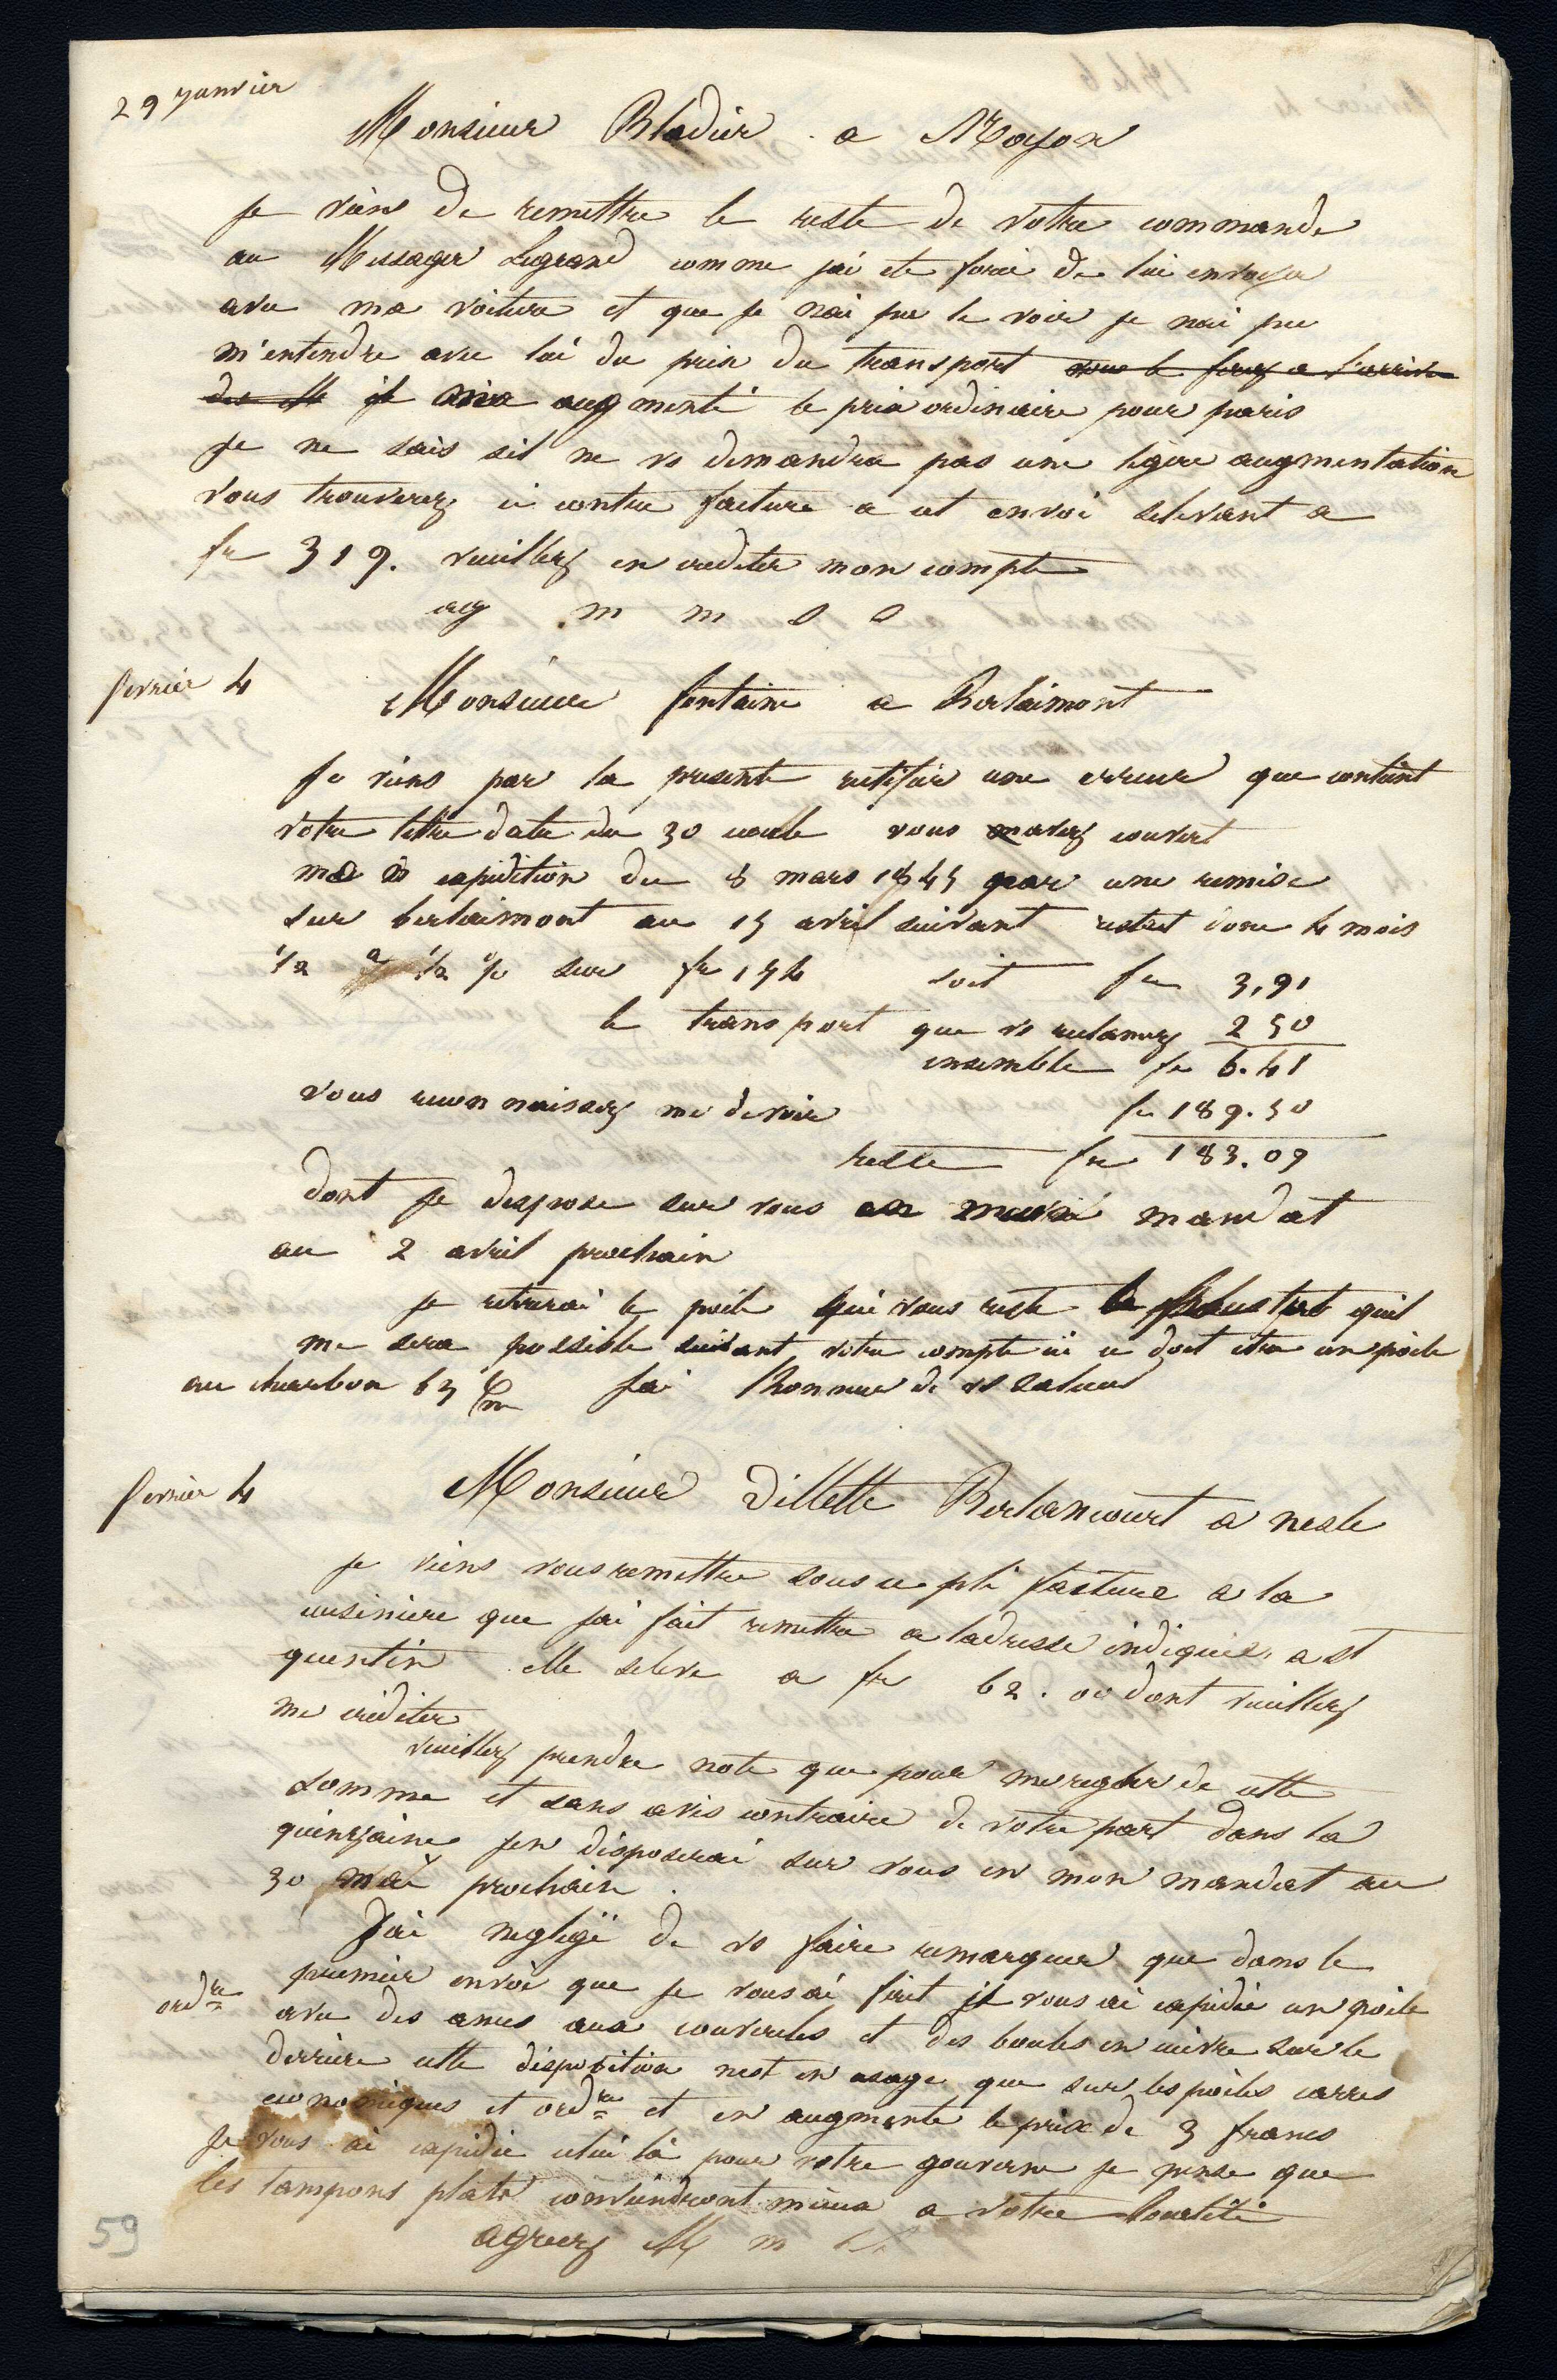 29 janvier
Monsieur Bladier a Noyon
je viens de remettre le reste de votre commande
au Messager Legrand comme jai ete forcé de lui envoyer
avec ma voiture et que je nai pu le voir je nai pu
m'entendre avec lui du prix du transport vous le ferez a l'arrivée
il m'a augmenté le prix ordinaire pour paris
je ne sais sil ne vs demandra pas une légère augmentation
vous trouverez ci contre facture a cet envoi selevant a
fr 319. veuillez en crediter mon compte
ag m m s s
fevrier 4
Monsieur fontaine a Berlaimont
je viens par la presente rectifier une erreur que contient
votre lettre datée du 30 ecoulé vous mavez couvert
ma expedition du 8 mars 1845 par une remise
sur berlaimont au 15 avril suivant restet donc 4 mois
1/2 a 1/2 % sur fr 174 soit fr 3,91
le transport que vs reclamez 2 50
ensemble fr 6.41
vous reconnaissez me devoir fr 189.50
reste fr 183.09
dont je dispose sur vous en mandat
au 2 avril prochain
je retirerai le poile qui vous reste le plus tot quil
me sera possible suivant votre compte ci ce doit etre un poile
au charbon 65 c/m jai lhonneur de vs saluer
fevrier 4
Monsieur Dillette Berlancourt a nesle
je viens vous remettre sous ce pli facture a la
cuisiniere que jai fait remettre a ladresse indiquée a st
quentin elle seleve a fr 62. 00 dont veuillez
me créditer
veuillez prendre note que pour me regler de cette
somme et sans avis contraire de votre part dans la
quinzaine jen disposerai sur vous en mon mandat au
30 mai prochain.
Jai negligé de vs faire remarquer que dans le
premier envoi que je vous ai fait je vous ai expédié un poile
ordre avec des anses aux couvercles et des boules en cuivre sur le
derriere cette disposition nest en usage que sur les poiles carrés
economiques et ordre et en augmente le prix de 3 francs
Je vous ai expédié celui là pour votre gouverne je pense que
les tampons plats conviendront mieux a votre localité
agreez M m
59